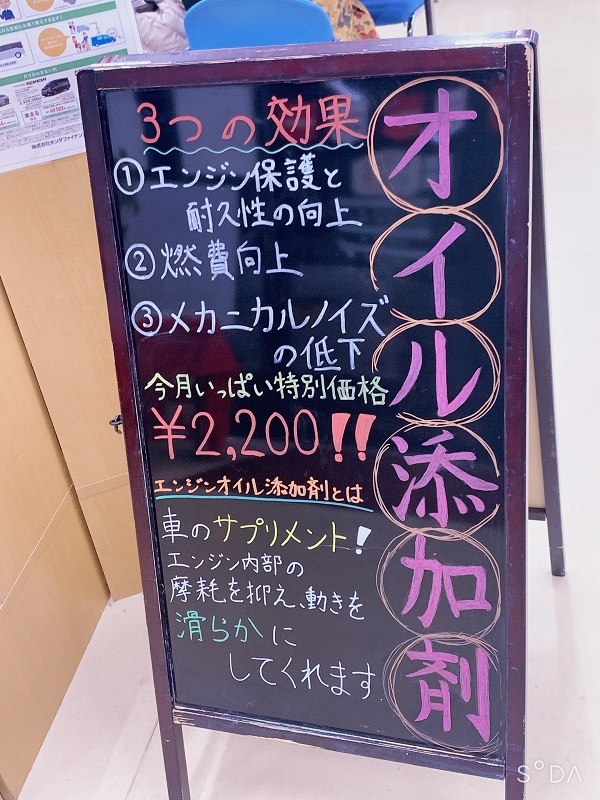 オイル添加剤
3つの効果
①エンジン保護と
耐久性の向上
②燃費向上
③メカニカルノイズ
の低下
今月いっぱい特別価格
¥2,200!!
エンジンオイル添加剤とは
車のサプリメント!
エンジン内部の
摩耗を抑え、動きを
滑らかに
してくれます
SODA